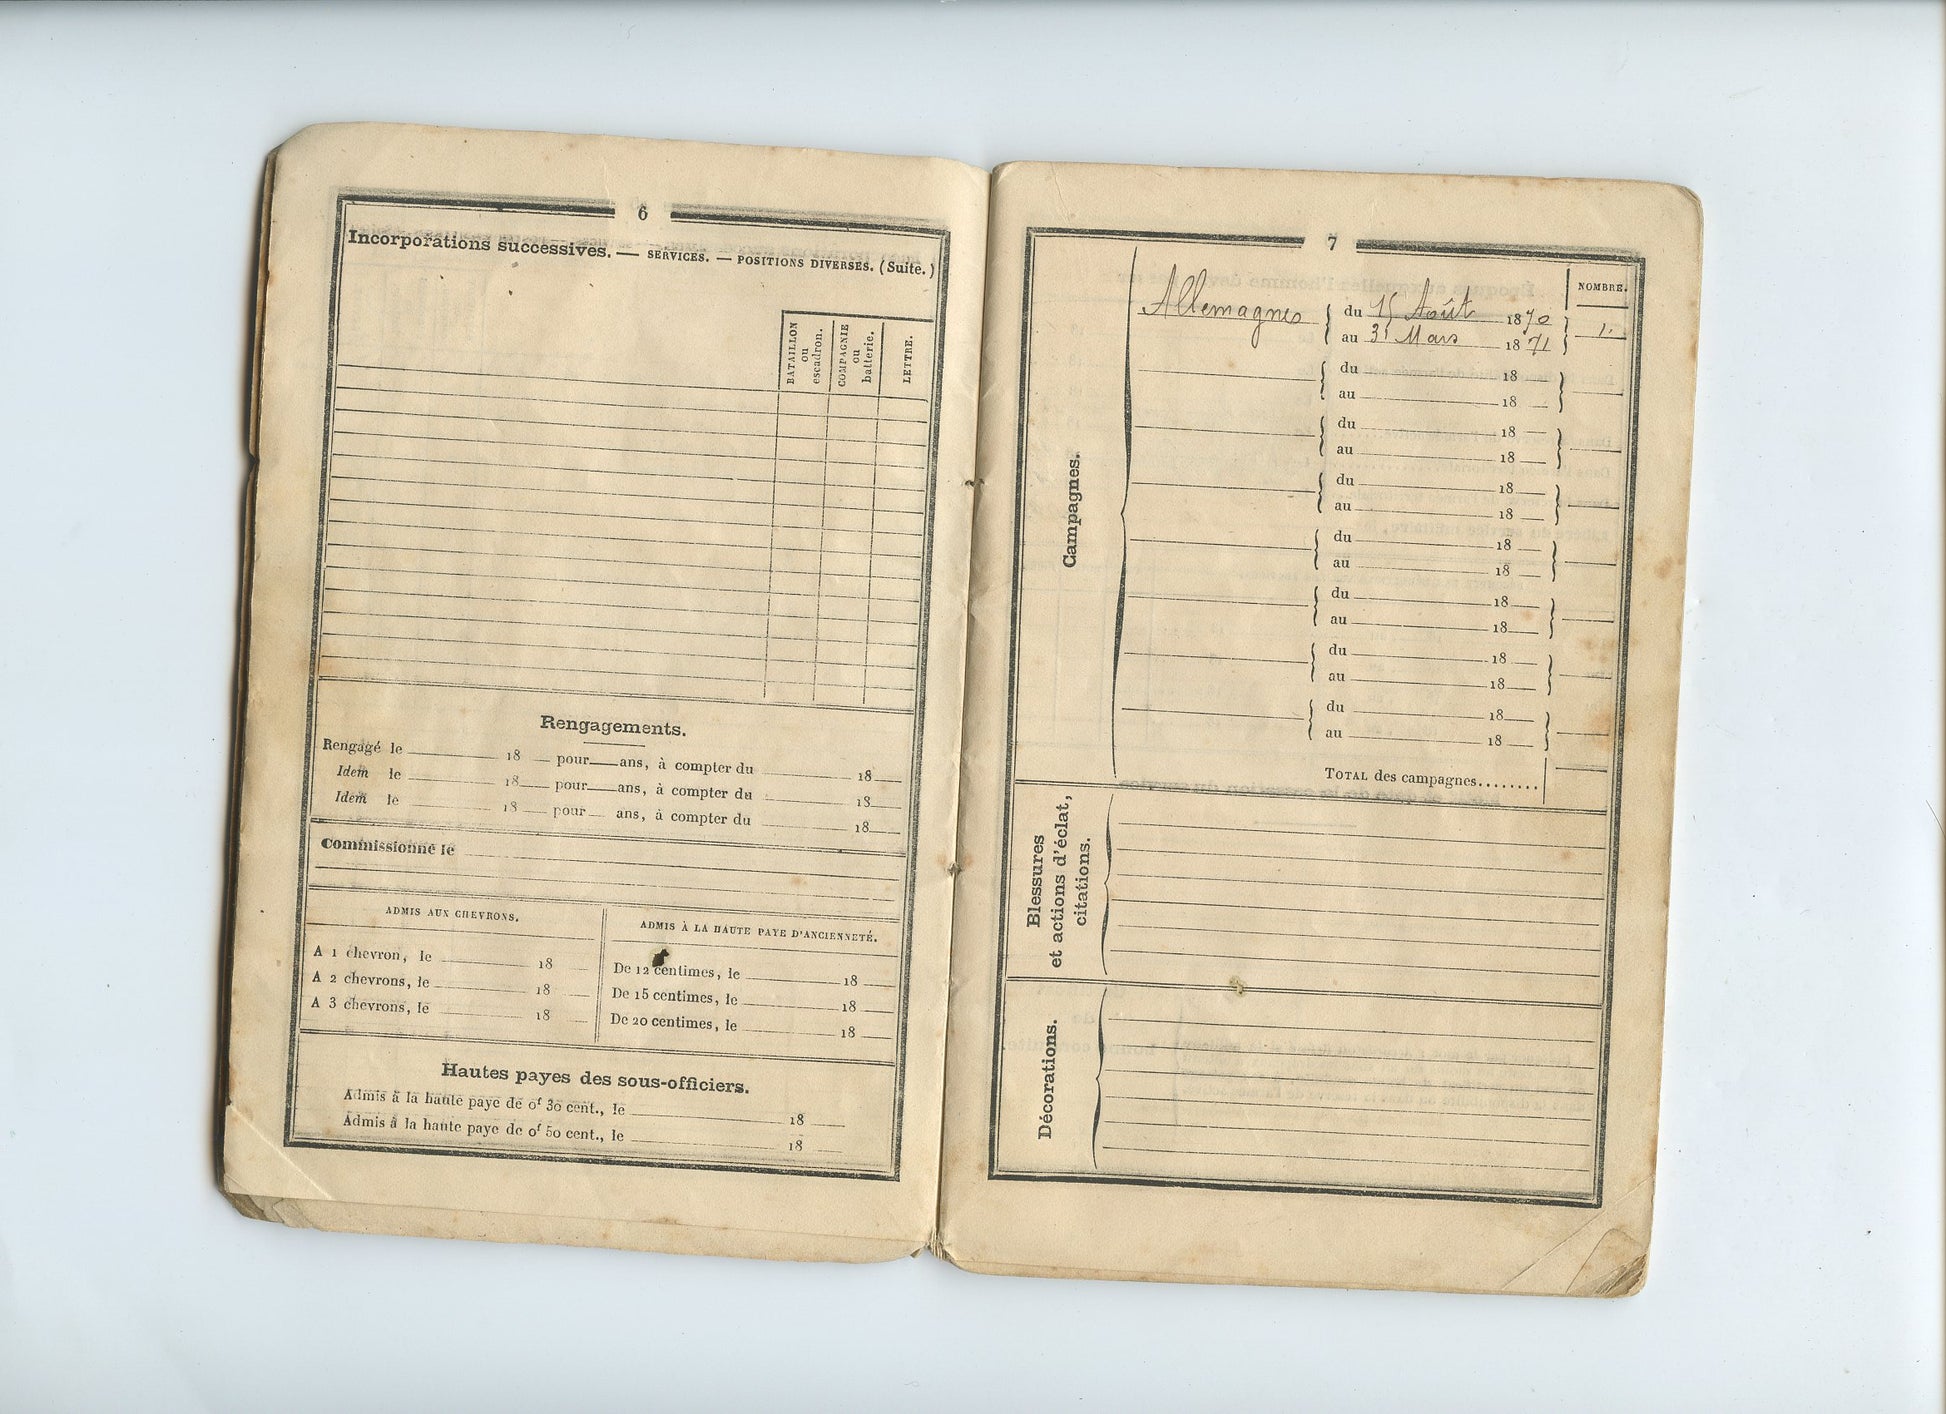 6
Incorporations successives. — SERVICES. — POSITIONS DIVERSES. (Suite.)
BATAILLON ou escadron.
COMPAGNIE ou batterie.
LETTRE.
Rengagements.
Rengagé le 18 pour ans, à compter du 18
Idem le 18 pour ans, à compter du 18
Idem le 18 pour ans, à compter du 18
Commissionné le
ADMIS AUX CHEVRONS.
A 1 chevron, le 18
A 2 chevrons, le 18
A 3 chevrons, le 18
ADMIS À LA HAUTE PAYE D'ANCIENNETÉ.
De 12 centimes, le 18
De 15 centimes, le 18
De 20 centimes, le 18
Hautes payes des sous-officiers.
Admis à la haute paye de of 30 cent., le 18
Admis à la haute paye de of 50 cent., le 18
7
NOMBRE.
Campagnes.
Allemagnes du 15 Août 1870
au 31 Mars 1871 1.
du 18
au 18
du 18
au 18
du 18
au 18
du 18
au 18
du 18
au 18
du 18
au 18
du 18
au 18
TOTAL des campagnes........
Blessures
et actions d'éclat,
citations.
Décorations.